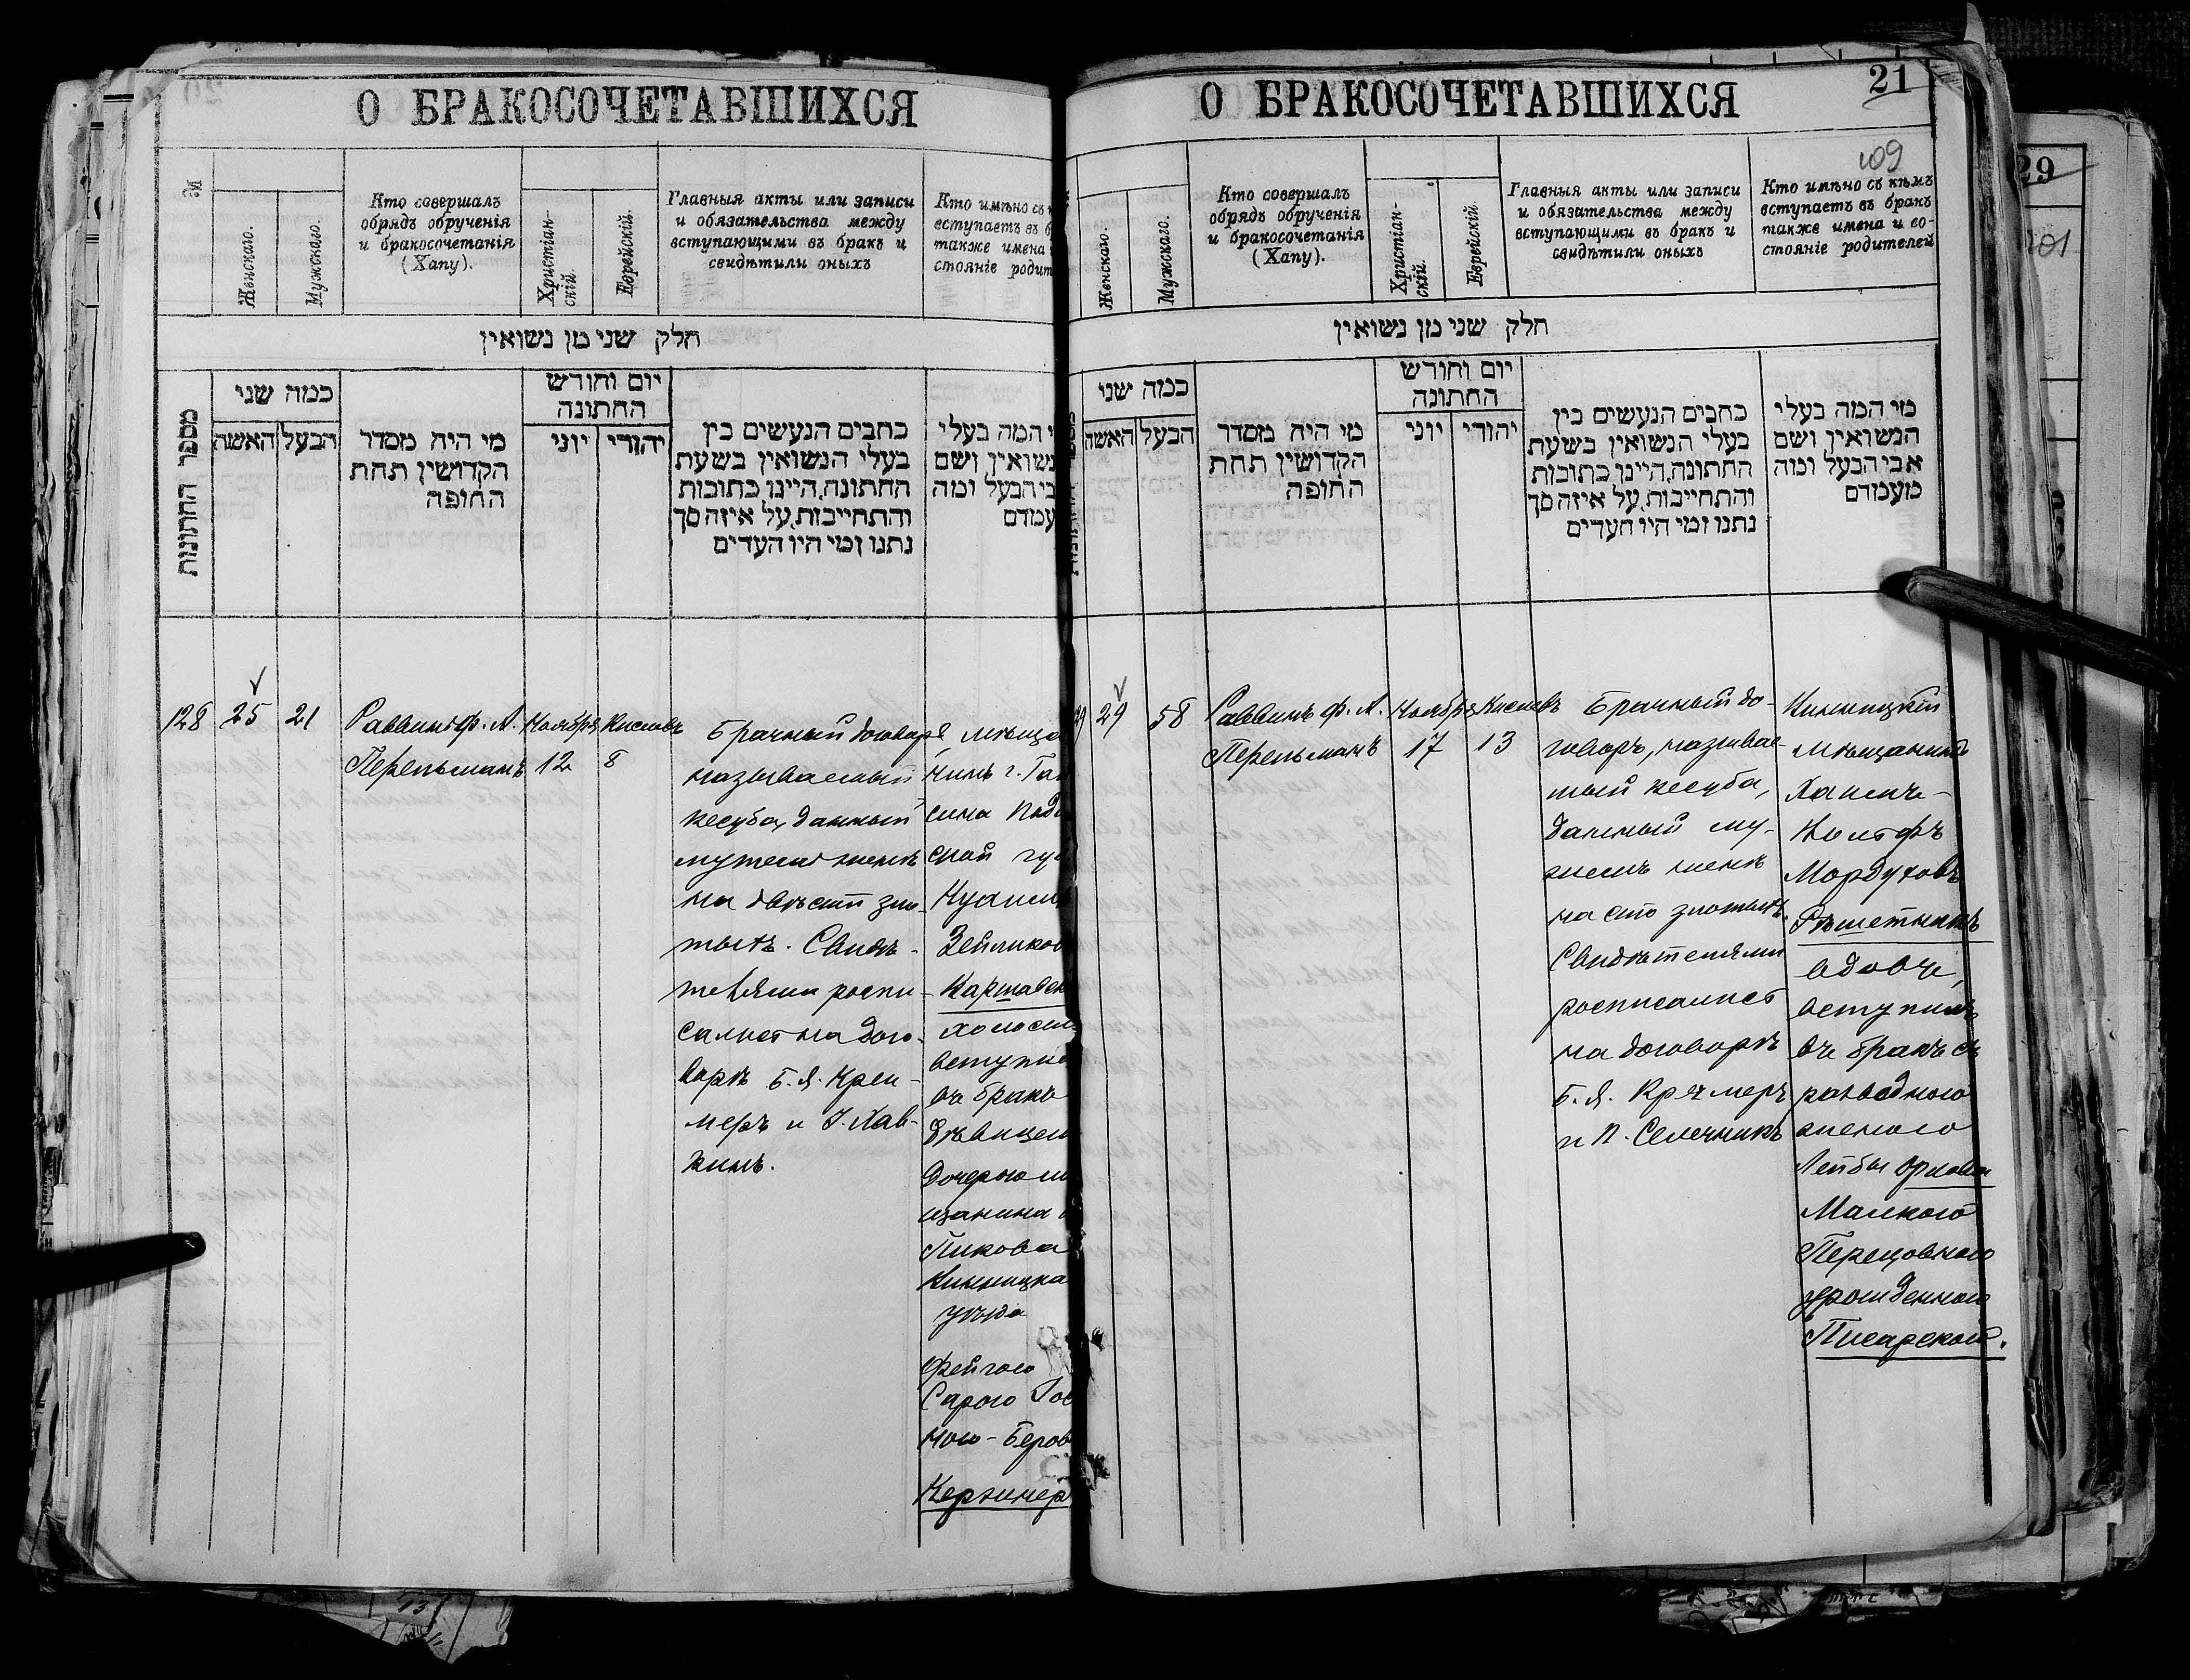 О БРАКОСОЧЕТАВШИХСЯ
№
Женскаго.
Мужскаго.
Кто совершалъ
обрядъ обрученія
и бракосочетанія
(Хапу).
Христіан-
скій.
Еврейскій.
Главныя акты или записи
и обязательства между
вступающими въ бракъ и
свидѣтили оныхъ
Кто имѣно съ
вступаетъ въ
также имена
стояніе родит
חלק שני מן נשואין
מספר החתונות
כמה שני
האשה
הבעל
מי היה מסדר
הקדושין תחת
החופה
יום וחודש
החתונה
יוני
יהודי
כתבים הנעשים בין
בעלי הנשואין בשעת
החתונה, היינו כתובות
והתחייבות, על איזה סך
נתנו ומי היו העדים
י המה בעלי
נשואין ושם
בי הבעל ומה
עמדם
128
25
21
Раввинъ Ф. А.
Перельманъ
Ноября
12
Кислевъ
8
Брачный договоръ
называемый
кесуба, данный
мужемъ женѣ
на двѣсти зло-
тыхъ. Свидѣ-
телями роспи-
сались на дого-
ворѣ Б. Я. Крем-
меръ и Хав-
кинъ.
мѣща
нинъ г.
сина Подо
ской гу
Зейликов
Каршавск
холост
вступи
въ бракъ
дѣвицею
дочерью м
щанина
Пикова
Винницка
уѣзда
Фейгою
Сарою
ною-Беров
Кержнер
О БРАКОСОЧЕТАВШИХСЯ
21
109
Женскаго.
Мужскаго.
Кто совершалъ
обрядъ обрученія
и бракосочетанія
(Хапу).
Христіан-
скій.
Еврейскій.
Главныя акты или записи
и обязательства между
вступающими въ бракъ и
свидѣтили оныхъ
Кто имѣно съ кѣмъ
вступаетъ въ бракъ
также имена и со-
стояніе родителей
חלק שני מן נשואין
כמה שני
האשה
הבעל
מי היה מסדר
הקדושין תחת
החופה
יום וחודש
החתונה
יוני
יהודי
כתבים הנעשים בין
בעלי הנשואין בשעת
החתונה, היינו כתובות
והתחייבות, על איזה סך
נתנו ומי היו העדים
מי המה בעלי
הנשואין ושם
אבי הבעל ומה
מעמדם
29
58
Раввинъ Ф. А.
Перельманъ
Ноября
17
Кислевъ
13
Брачный до-
говоръ, называе-
мый кесуба,
данный му-
жемъ женѣ
на сто злотыхъ.
Свидѣтелями
росписались
на договорѣ
Б. Я. Кремеръ
и П. Селечникъ
Винницкій
мѣщанинъ
Хаимъ-
Мордуховъ
Рѣшетникъ
вдовецъ,
вступилъ
въ бракъ съ
разводною
женою
Лейбы Орлова
Малкою
Перецовною
урожденною
Писарской.
29
101